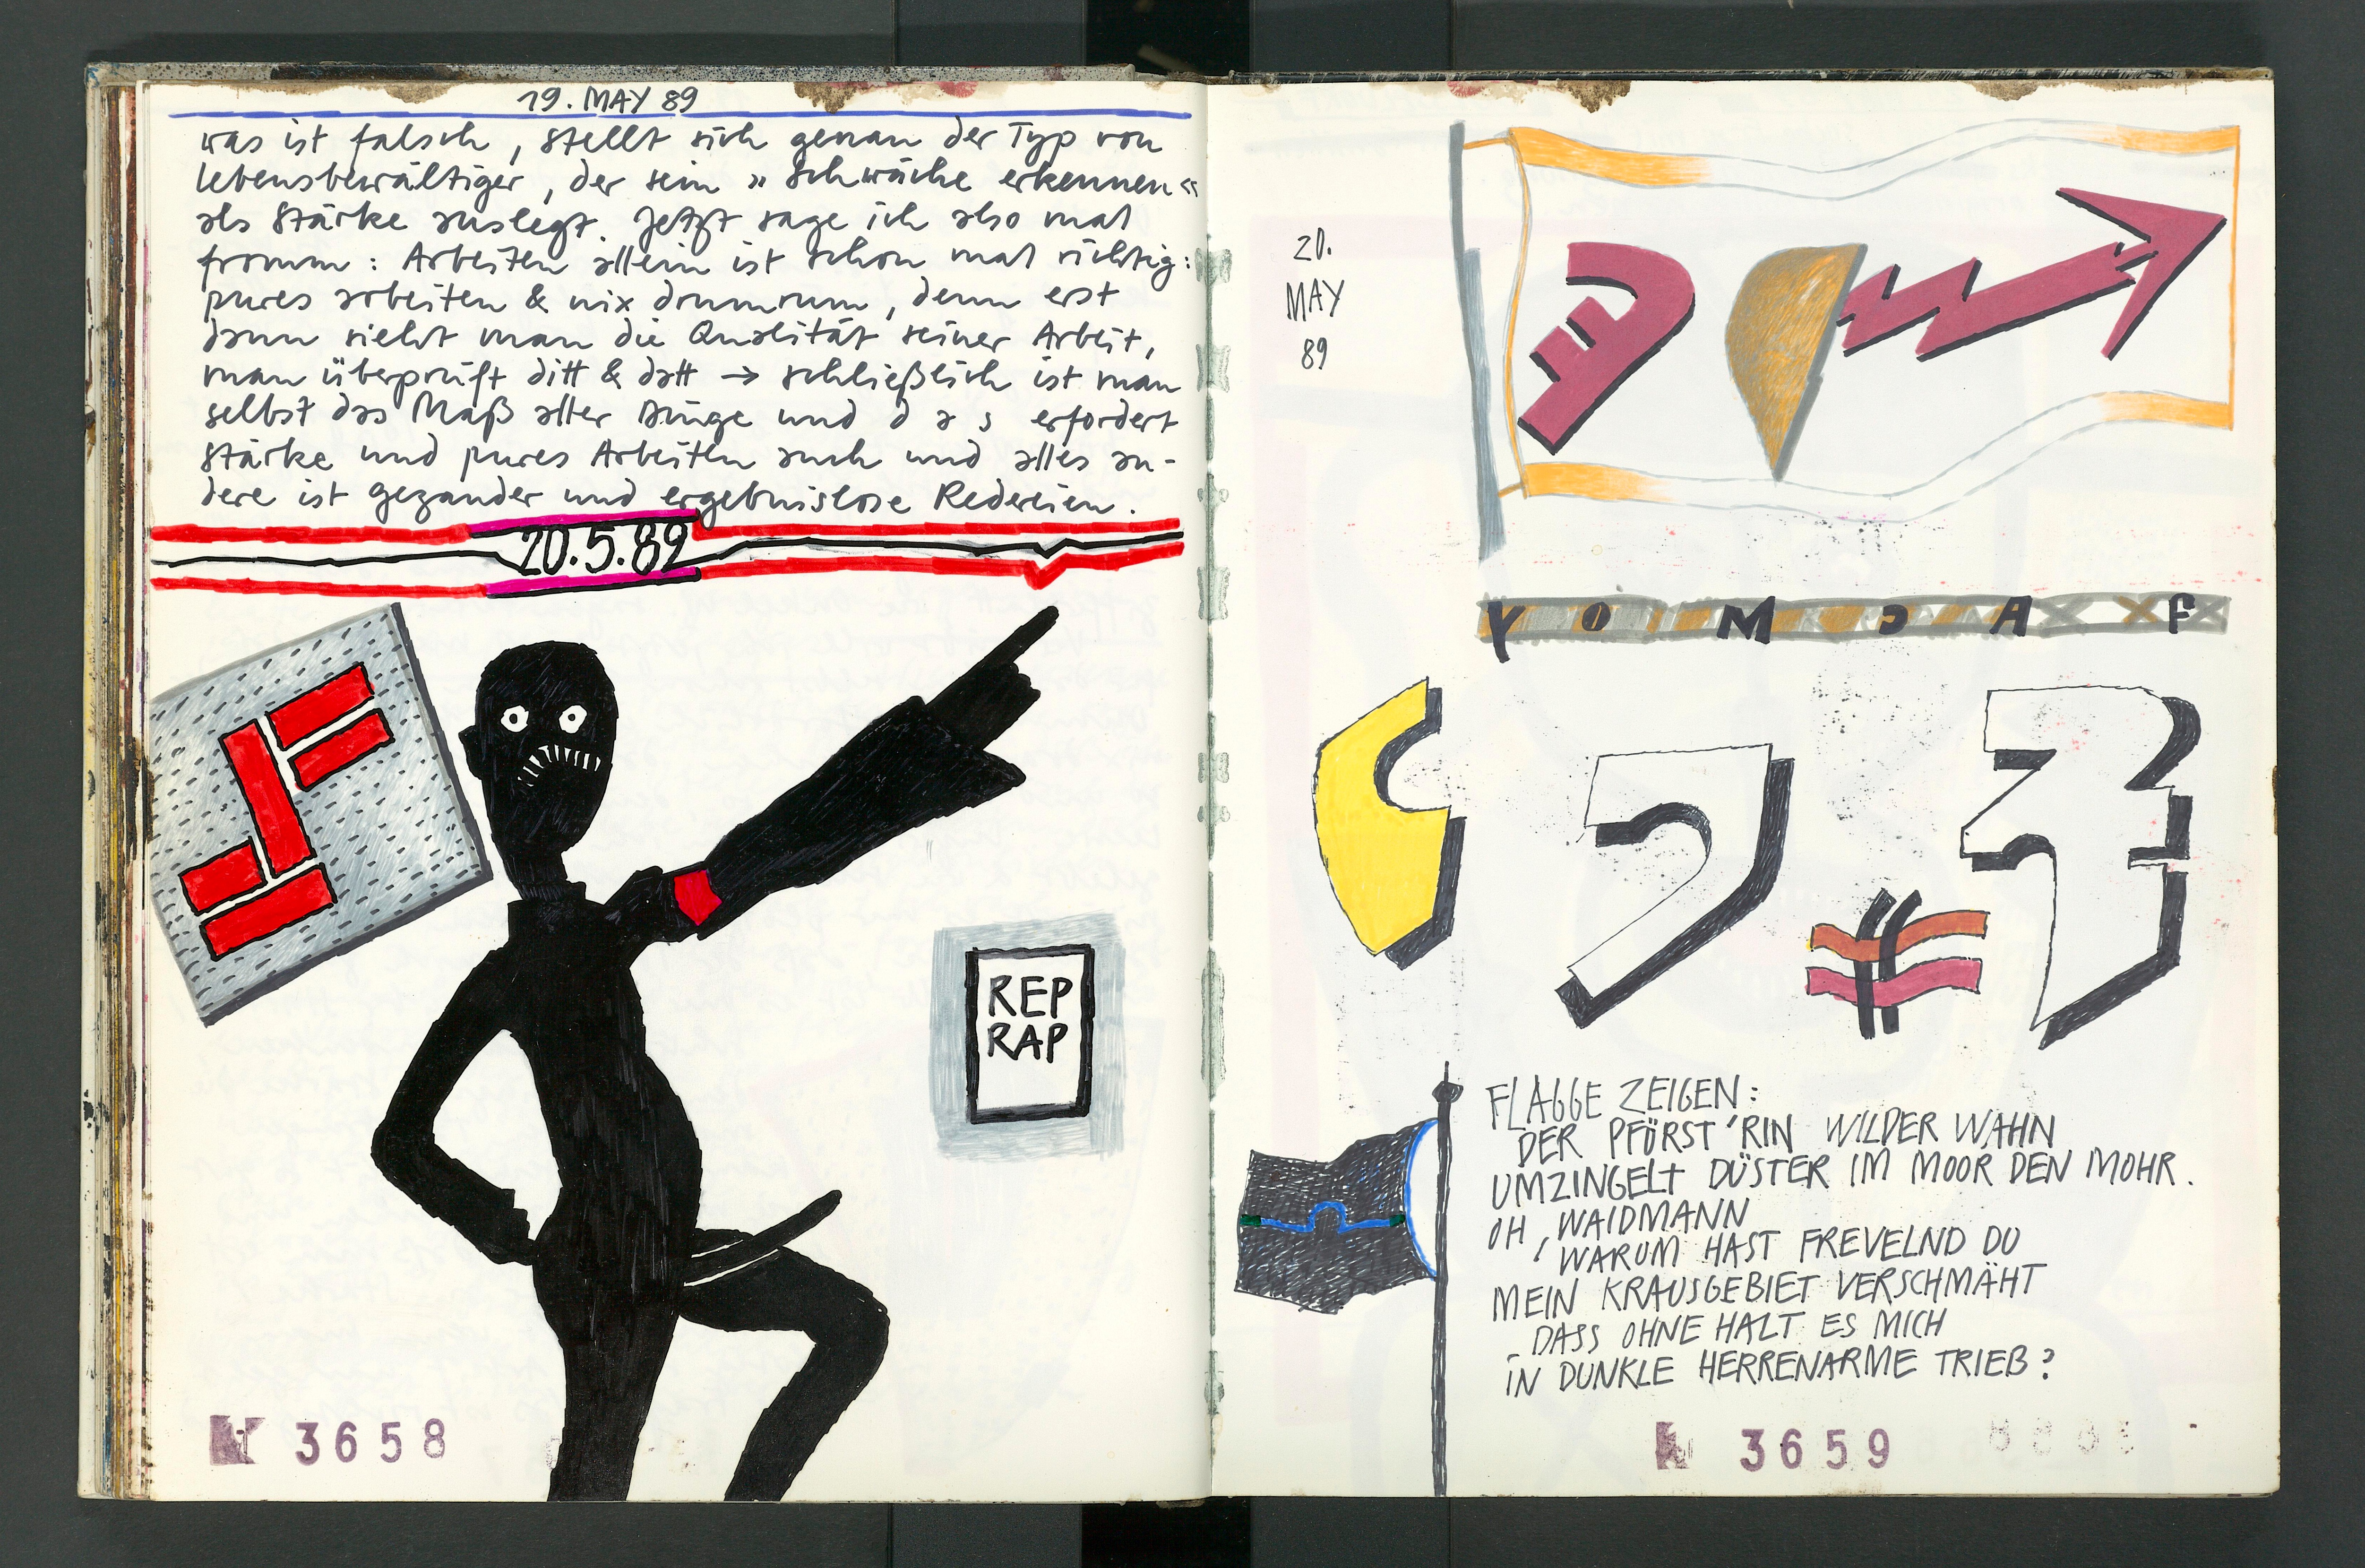 19. MAY 89
was ist falsch, stellt sich genau der Typ von
lebensbewältiger, der sein »schwäche erkennen«
als Stärke auslegt. Jetzt sage ich also mal
fromm: Arbeiten allein ist schon mal richtig:
pures arbeiten & nix drumrum, denn erst
dann sieht man die Qualität seiner Arbeit,
man überprüft ditt & datt → schließlich ist man
selbst das Maß aller Dinge und d a s erfordert
Stärke und pures Arbeiten auch und alles an-
dere ist gezander und ergebnislose Redereien.
20.5.89
REP
RAP
3658
20.
MAY
89
Y O M A F
FLAGGE ZEIGEN:
DER PFÖRST'RIN WILDER WAHN
UMZINGELT DÜSTER IM MOOR DEN MOHR.
OH, WAIDMANN
! WARUM HAST FREVELND DU
MEIN KRAUSGEBIET VERSCHMÄHT
_ DASS OHNE HALT ES MICH
IN DUNKLE HERRENARME TRIEB?
3659